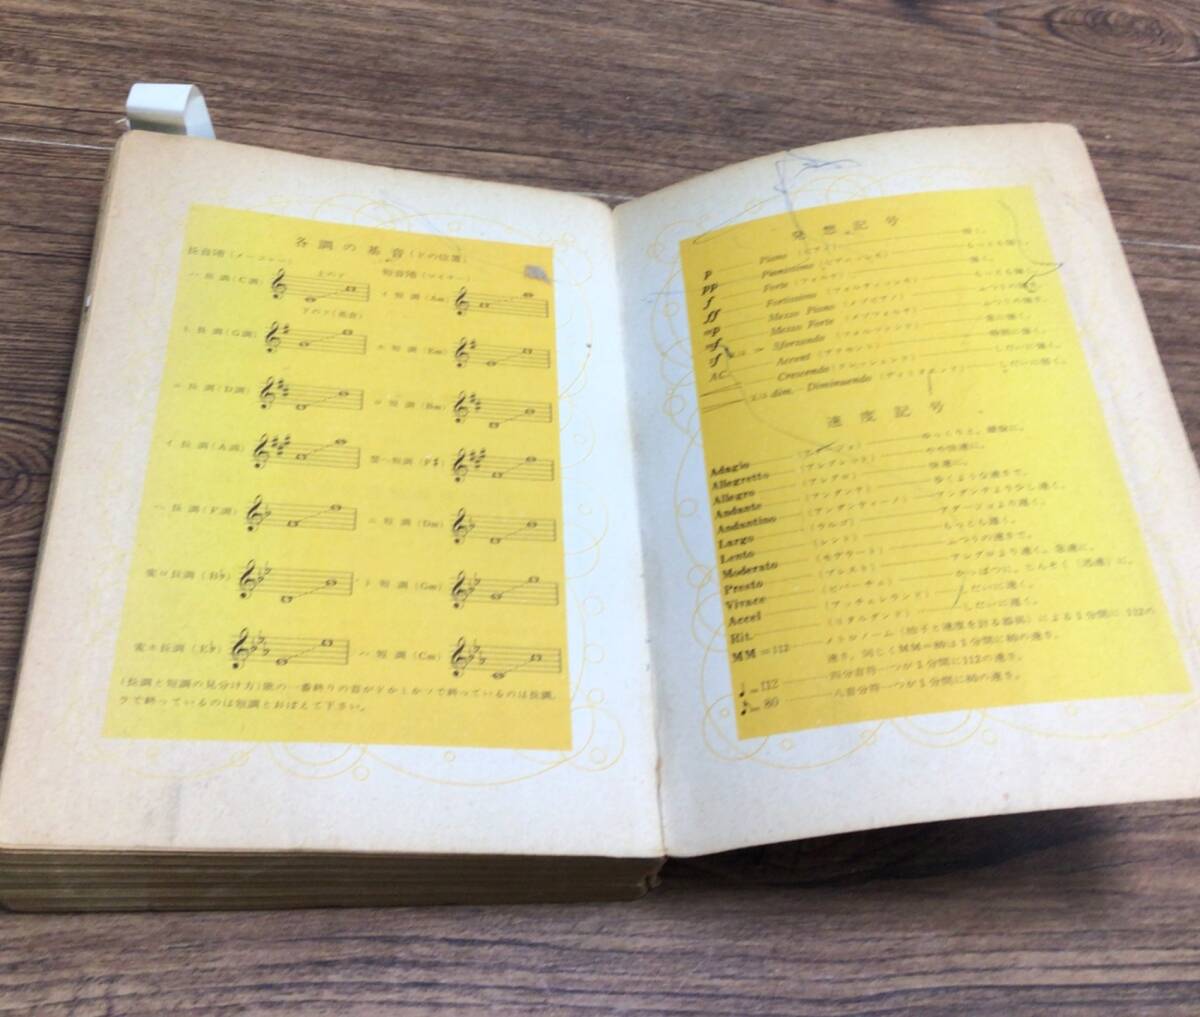 各調の基音(ドの位置)
長音階(メージャー)
短音階(マイナー)
上のド
ハ長調(C調)
イ短調(Am)
下のド(基音)
ト長調(G調)
ホ短調(Em)
ニ長調(D調)
ロ短調(Bm)
イ長調(A調)
嬰ヘ短調(F♯)
ヘ長調(F調)
ニ短調(Dm)
変ロ長調(B♭)
ト短調(Gm)
変ホ長調(E♭)
ハ短調(Cm)
(長調と短調の見分け方)歌の一番終りの音がドかミかソで終っているのは長調。
ラで終っているのは短調とおぼえて下さい。
発想記号
p Piano (ピアノ) 弱く。
pp Pianissimo (ピアニッシモ) もっとも弱く。
f Forte (フォルテ) 強く。
ff Fortissimo (フォルティッシモ) もっとも強く。
mp Mezzo Piano (メゾピアノ)
mf Mezzo Forte (メゾフォルテ)
sf Sforzando (スフォルツァンド)
AC. Accent (アクセント) 特別に強く。
Crescendo (クレッシェンド) しだいに強く。
又は dim. Diminuendo (ディミヌエンド) しだいに弱く。
速度記号
Adagio ゆっくりと。
Allegretto (アレグレット) やや快速に。
Allegro (アレグロ) 快速に。
Andante (アンダンテ) 歩くような速さで。
Andantino (アンダンティーノ) アンダンテより少し速く。
Largo (ラルゴ) アダージョより遅く。
Lento (レント) もっとも遅く。
Moderato (モデラート) ふつうの速さで。
Presto (プレスト) アレグロより速く。急速に。
Vivace (ビバーチェ) かっぱつに。
Accel (アッチェレランド) しだいに速く。
Rit. (リタルダンド) しだいに遅く。
MM=112 メトロノーム(拍子と速度を計る器械)による1分間に112の
速さ。同じくMM=80は1分間に80の速さ。
♩=112 四分音符一つが1分間に112の速さ。
♪=80 八分音符一つが1分間に80の速さ。